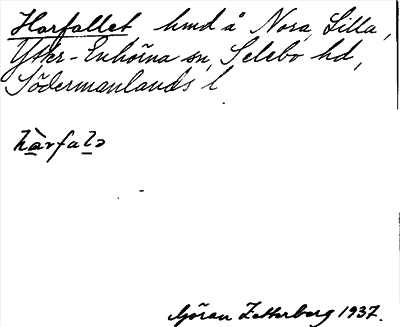 Harfallet hmd å Nora, Lilla,
Ytter-Enhörna sn, Selebo hd,
Södermanlands l
hàrfalə
Göran Zetterberg 1937.